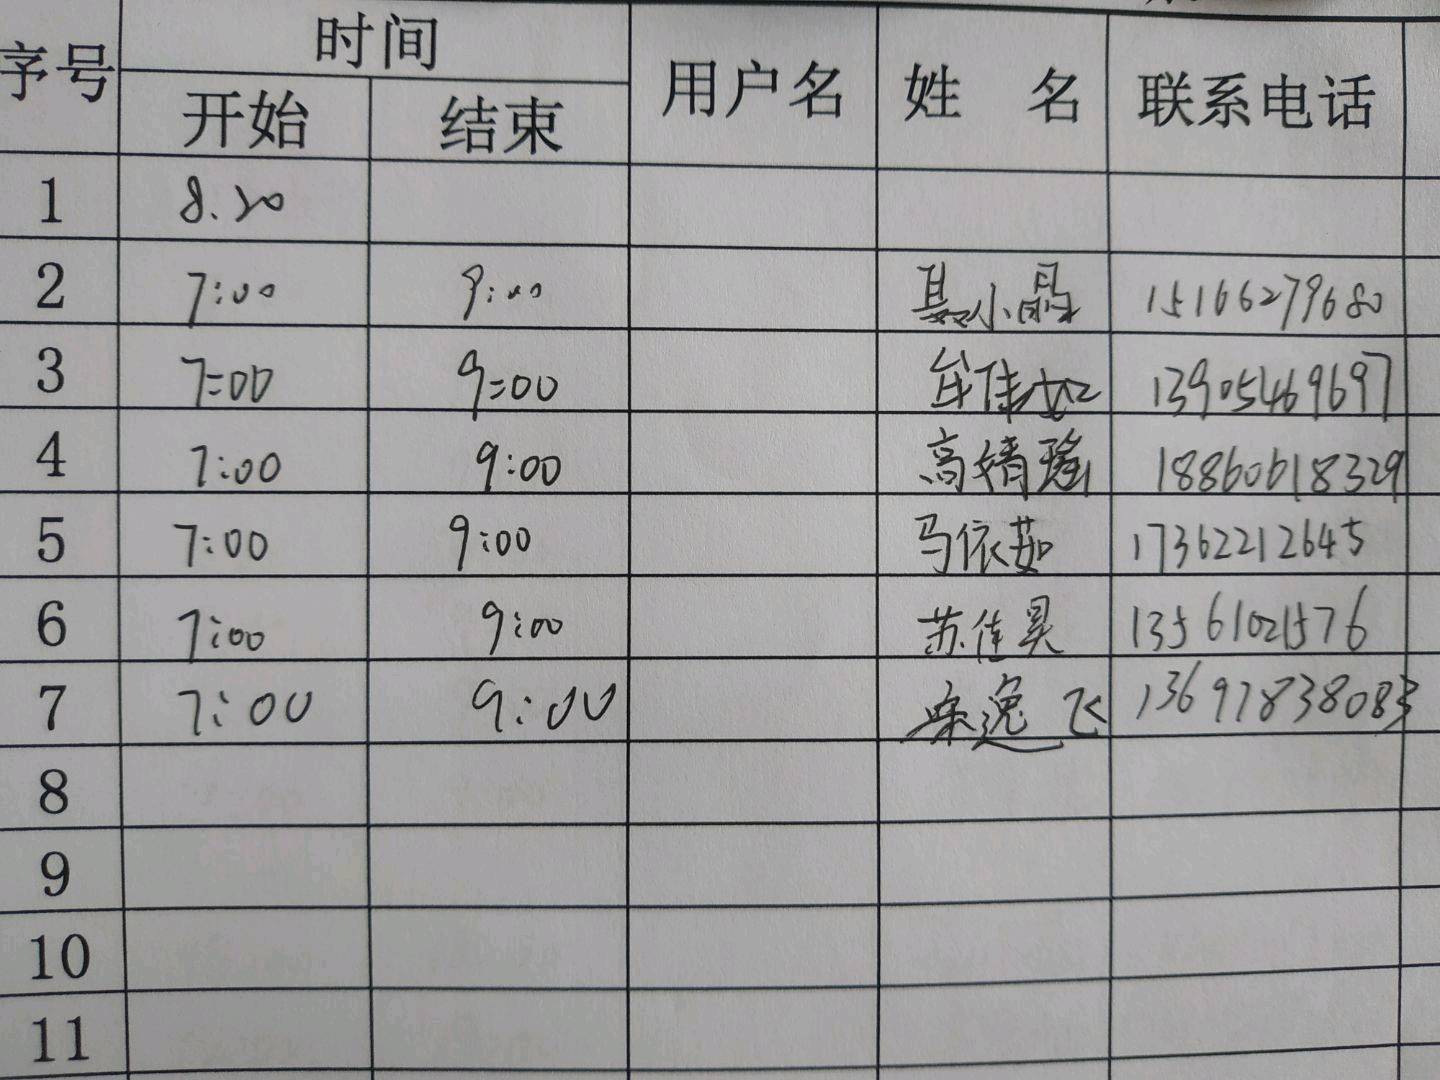 序号 时间 用户名 姓 名 联系电话
开始 结束
1 8.20
2 7:00 9:00 聂小晶 15166279680
3 7:00 9:00 牟佳如 13905469697
4 7:00 9:00 高婧瑤 18860618329
5 7:00 9:00 马依茹 17362212645
6 7:00 9:00 苏佳昊 13561021576
7 7:00 9:00 逸飞 13697838083
8
9
10
11